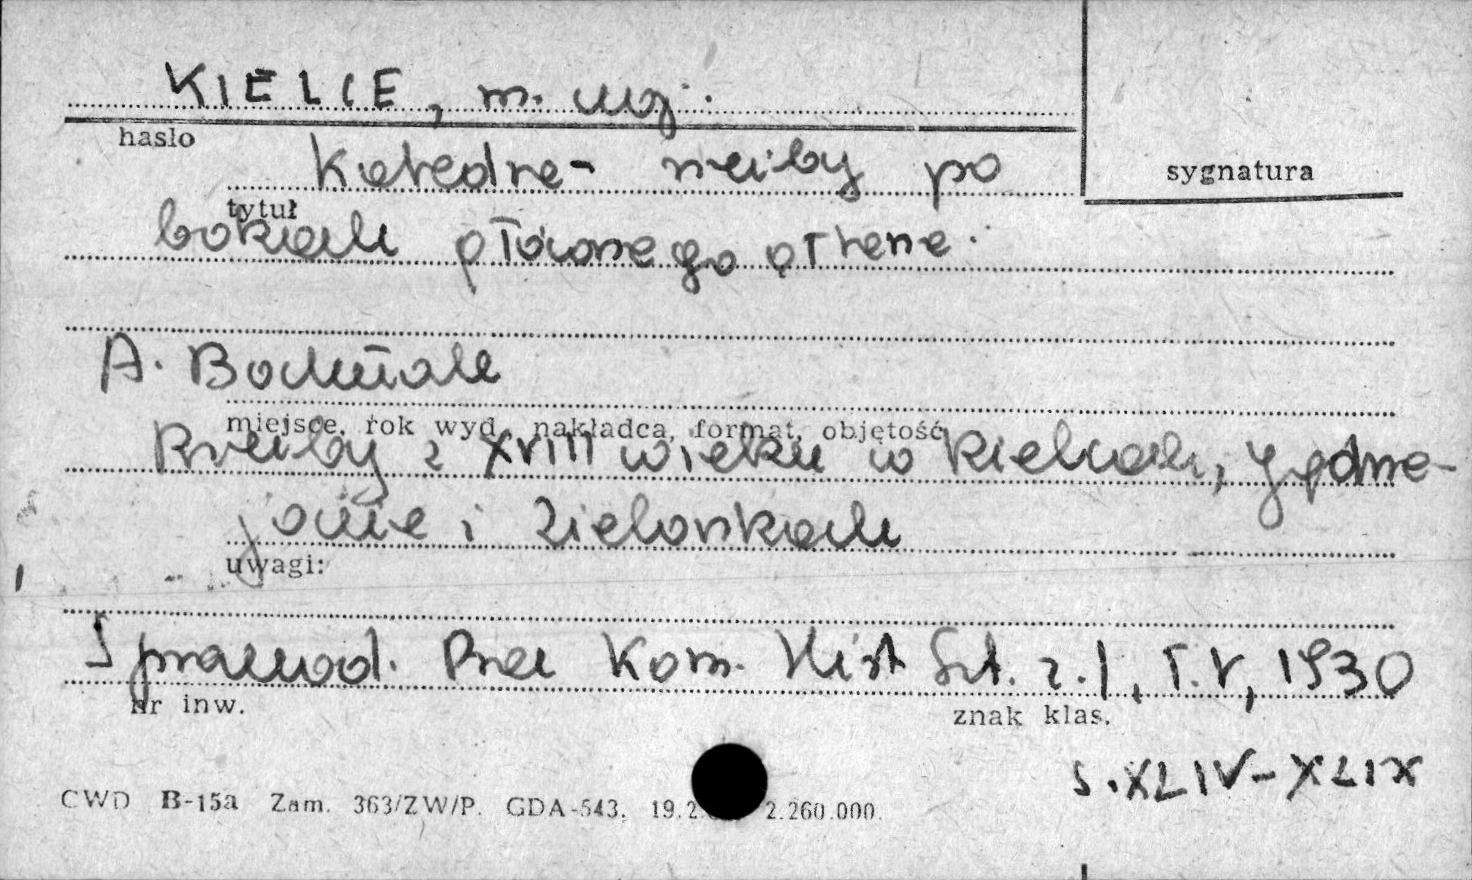 KIELCE, m. woj.
hasło
Katedra - rzeźby po
sygnatura
tytuł
bokach głównego ołtarza.
A. Bochnak
miejsce, rok wyd., nakładca, format, objętość
Rzeźby z XVIII wieku w Kielcach, Jędrze-
jowie i Zielonkach
uwagi:
Sprawozd. Prac Kom. Hist Szt. z. 1, T. V, 1930
nr inw.
znak klas.
s. XLIV - XLIX
CWD B-15a Zam. 363/ZW/P. GDA-543. 19.2. 2.260.000.